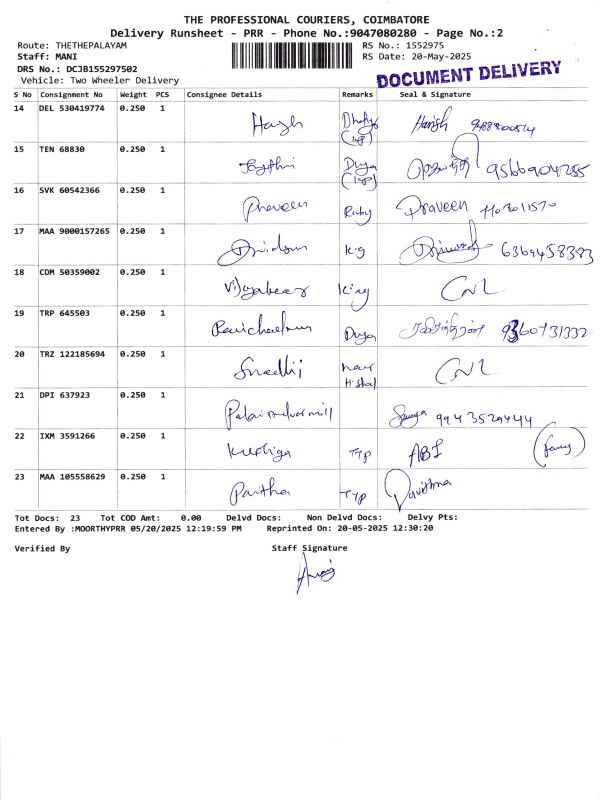 THE PROFESSIONAL COURIERS, COIMBATORE
Delivery Runsheet - PRR - Phone No.:9047080280 - Page No.:2
Route: THETHEPALAYAM RS No.: 1552975
Staff: MANI RS Date: 20-May-2025
DRS No.: DCJB155297502
Vehicle: Two Wheeler Delivery DOCUMENT DELIVERY
S No Consignment No Weight PCS Consignee Details Remarks Seal & Signature
14 DEL 530419774 0.250 1 Harish
15 TEN 68830 0.250 1 9566904285
16 SVK 60542366 0.250 1 Praveen Ruby Praveen
17 MAA 9000157265 0.250 1 K.g 6369458383
18 CDM 50359002 0.250 1 King CNL
19 TRP 645503 0.250 1 Ravichandran Durga ரவிசந்திரன் 9360731332
20 TRZ 122185694 0.250 1 CNL
21 DPI 637923 0.250 1 9943529444
22 IXM 3591266 0.250 1 TYP
23 MAA 105558629 0.250 1 Pavithra TYP Pavithra
Tot Docs: 23 Tot COD Amt: 0.00 Delvd Docs: Non Delvd Docs: Delvy Pts:
Entered By :MOORTHYPRR 05/20/2025 12:19:59 PM Reprinted On: 20-05-2025 12:30:20
Verified By Staff Signature